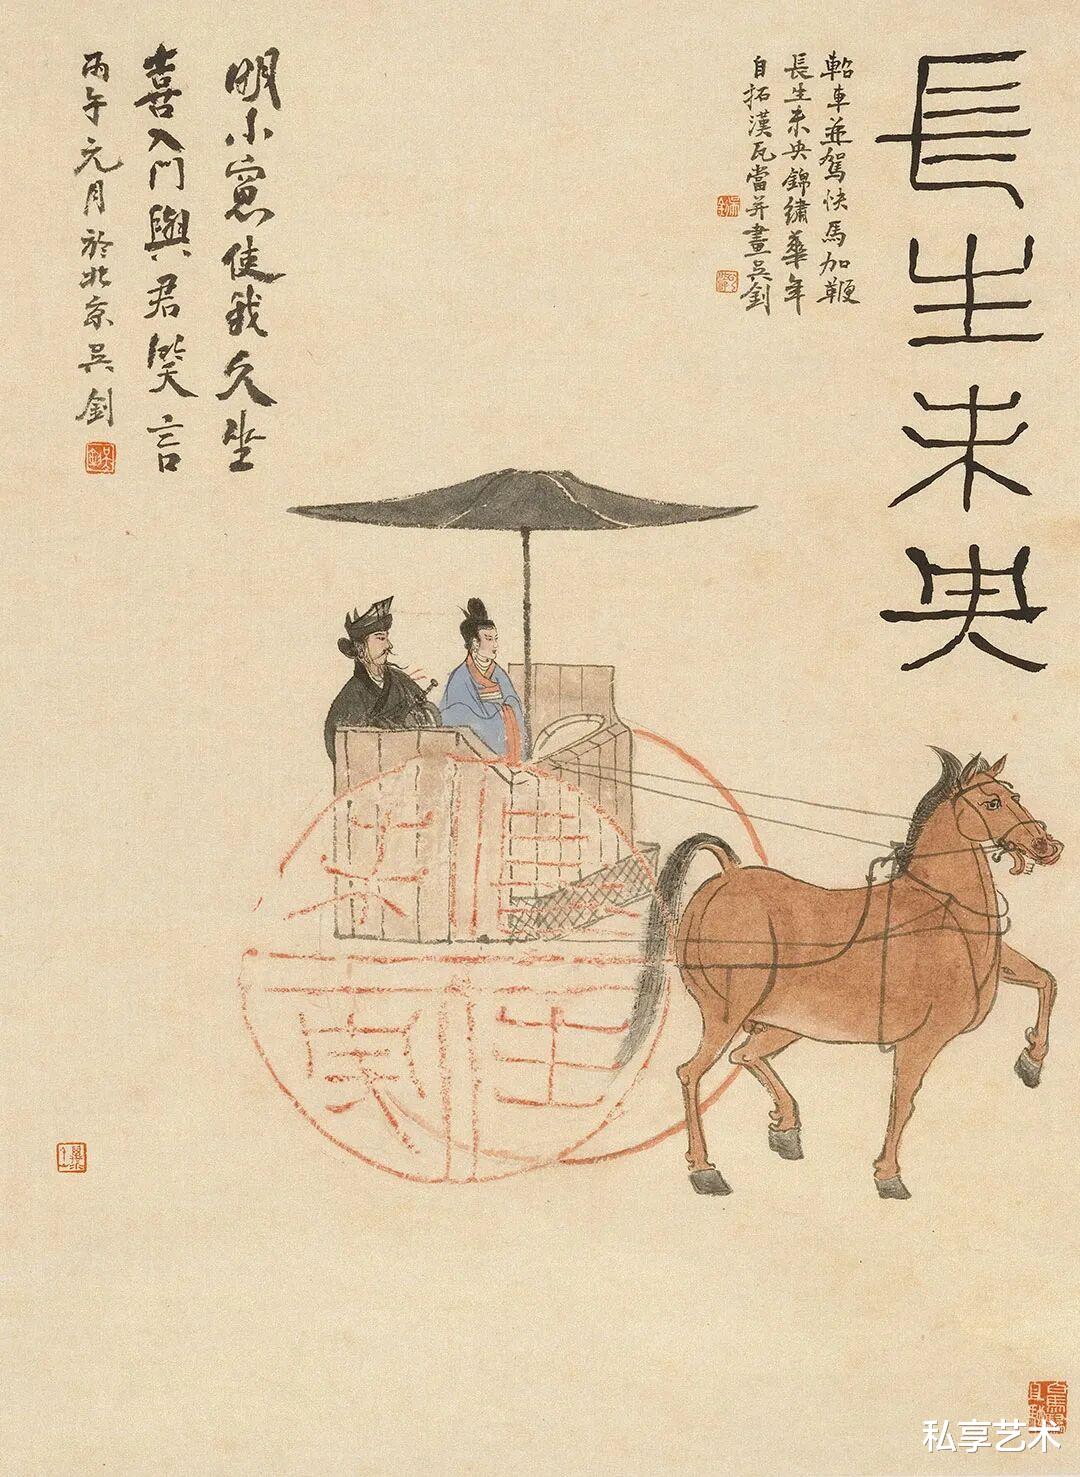 長生未央
軺車並駕快馬加鞭
長生未央錦繡華年
自拓漢瓦當并畫吳釗
明小窓使我久坐
喜入門與君笑言
丙午元月於北京吳釗
長生
未央
私享艺术